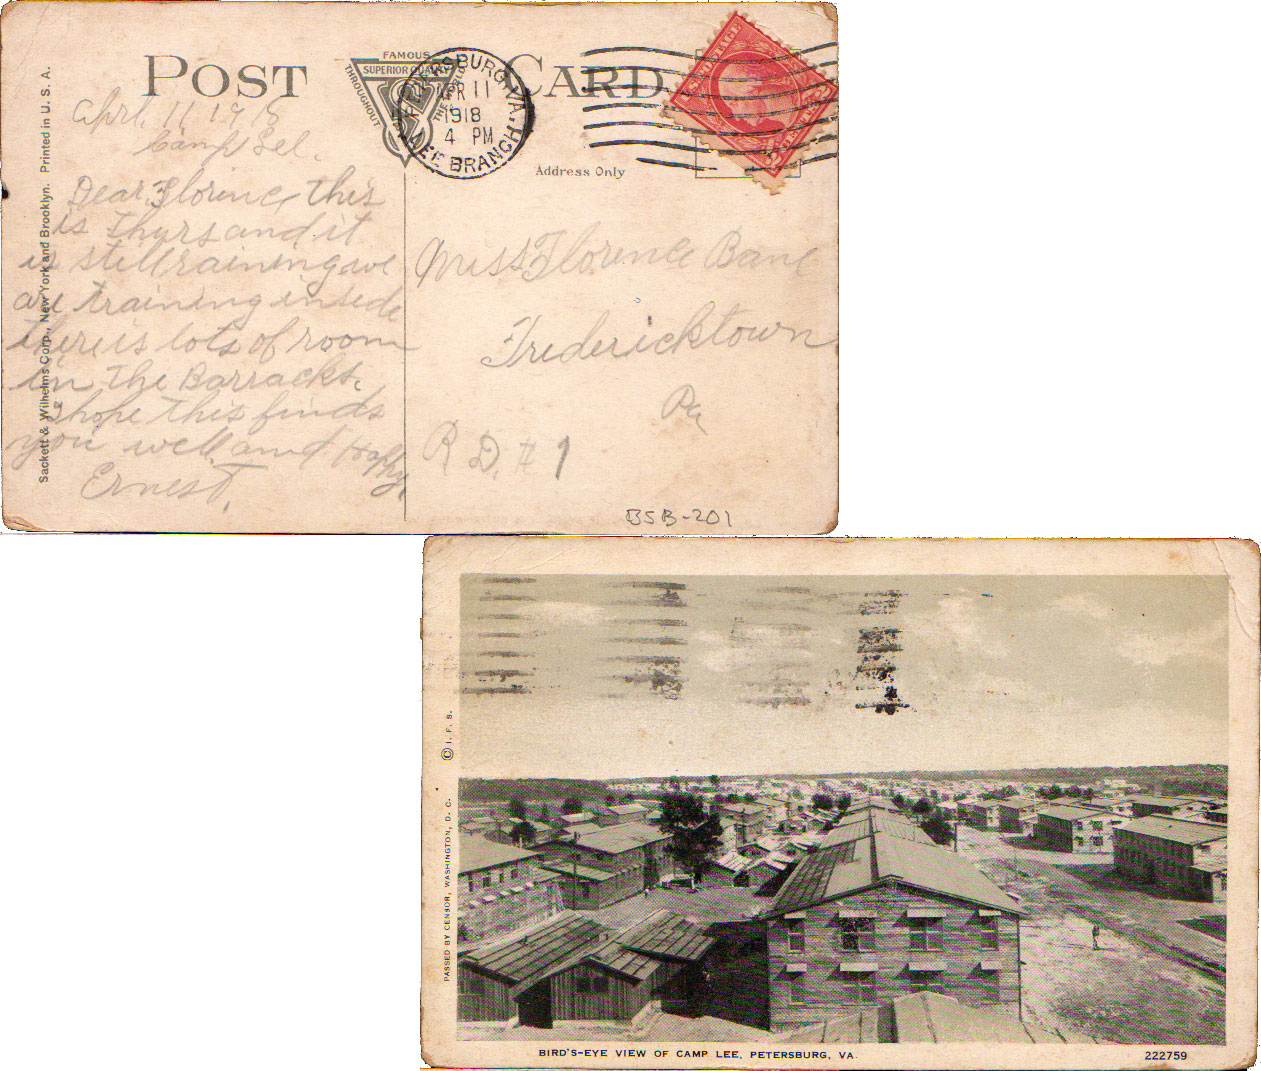 POST CARD
FAMOUS
SUPERIOR QUALITY
THROUGHOUT
THE WORLD
PETERSBURG, VA.
APR 11
1918
4 PM
LEE BRANCH
U.S. POSTAGE
2 CENTS 2
Address Only
Sackett & Wilhelms Corp., New York and Brooklyn. Printed in U. S. A.
Aprl. 11 1918
Camp Lee.
Dear Florence this
is Thurs and it
is still raining we
are training inside
there is lots of room
in the Barracks.
I hope this finds
you well and Happy.
Ernest.
Miss Florence Bane
Fredericktown
Pa
R D. # 1
BSB-201
© I. F. S.
PASSED BY CENSOR, WASHINGTON, D. C.
BIRD'S-EYE VIEW OF CAMP LEE, PETERSBURG, VA.
222759